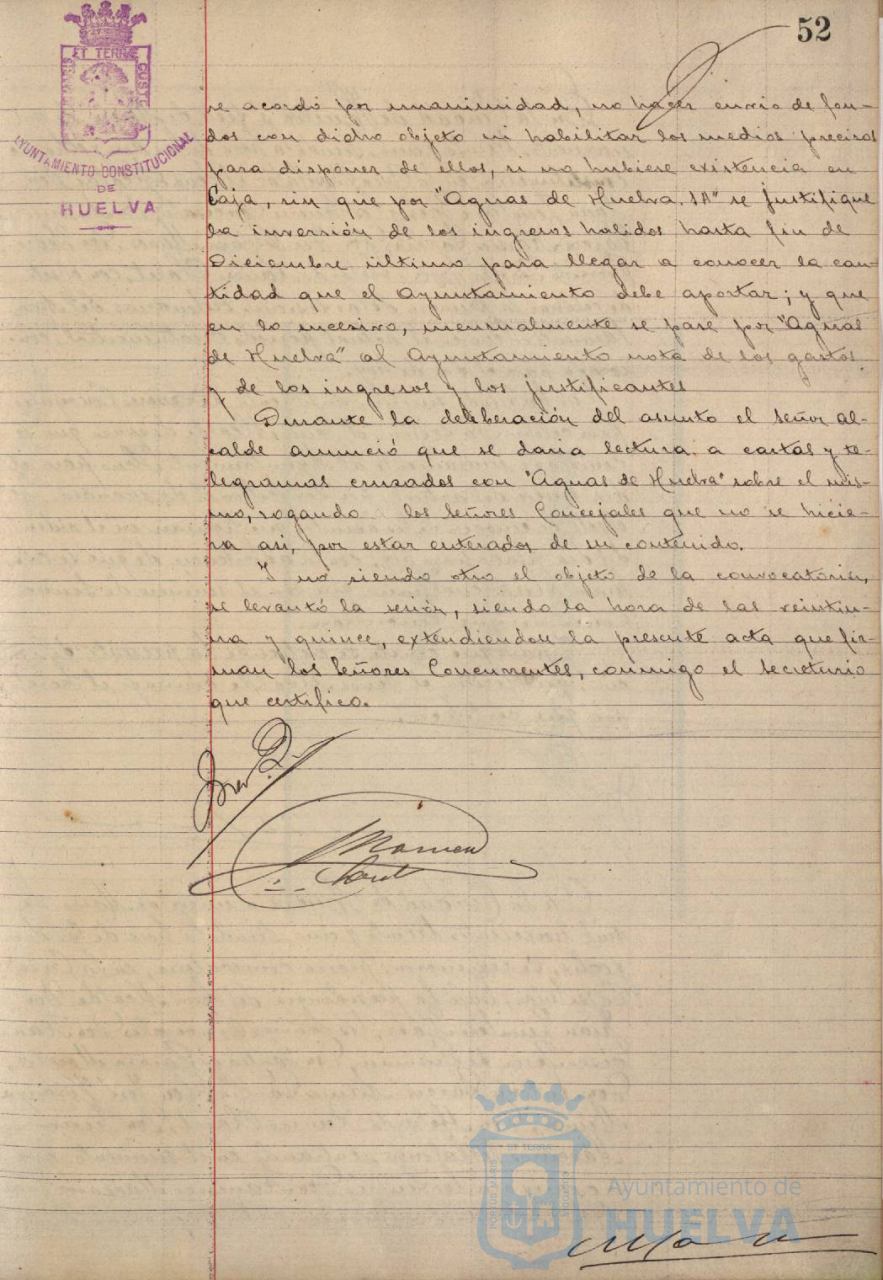 52
PORTUS MARIS ET TERRÆ CUSTODIA
AYUNTAMIENTO CONSTITUCIONAL
DE
HUELVA
se acordó por unanimidad, no hacer envío de fon-
dos con dicho objeto ni habilitar los medios precisos
para disponer de ellos, si no hubiere existencia en
Caja, sin que por "Aguas de Huelva. SA" se justifique
la inversión de los ingresos habidos hasta fin de
Diciembre último para llegar a conocer la can-
tidad que el Ayuntamiento debe aportar; y que
en lo sucesivo, mensualmente se pase por "Aguas
de Huelva" al Ayuntamiento nota de los gastos
y de los ingresos y los justificantes
Durante la deliberación del asunto el señor al-
calde anunció que se daria lectura a cartas y te-
legramas cruzados con "Aguas de Huelva" sobre el mis-
mo, rogando los Señores Concejales que no se hicie-
ra asi, por estar enterados de su contenido.
Y no siendo otro el objeto de la convocatoria,
se levantó la sesión, siendo la hora de las veintiu-
na y quince, extendiendose la presente acta que fir-
man los Señores Concurrentes, conmigo el Secretario
que certifico.
PORTUS MARIS ET TERRÆ CUSTODIA
Ayuntamiento de
HUELVA